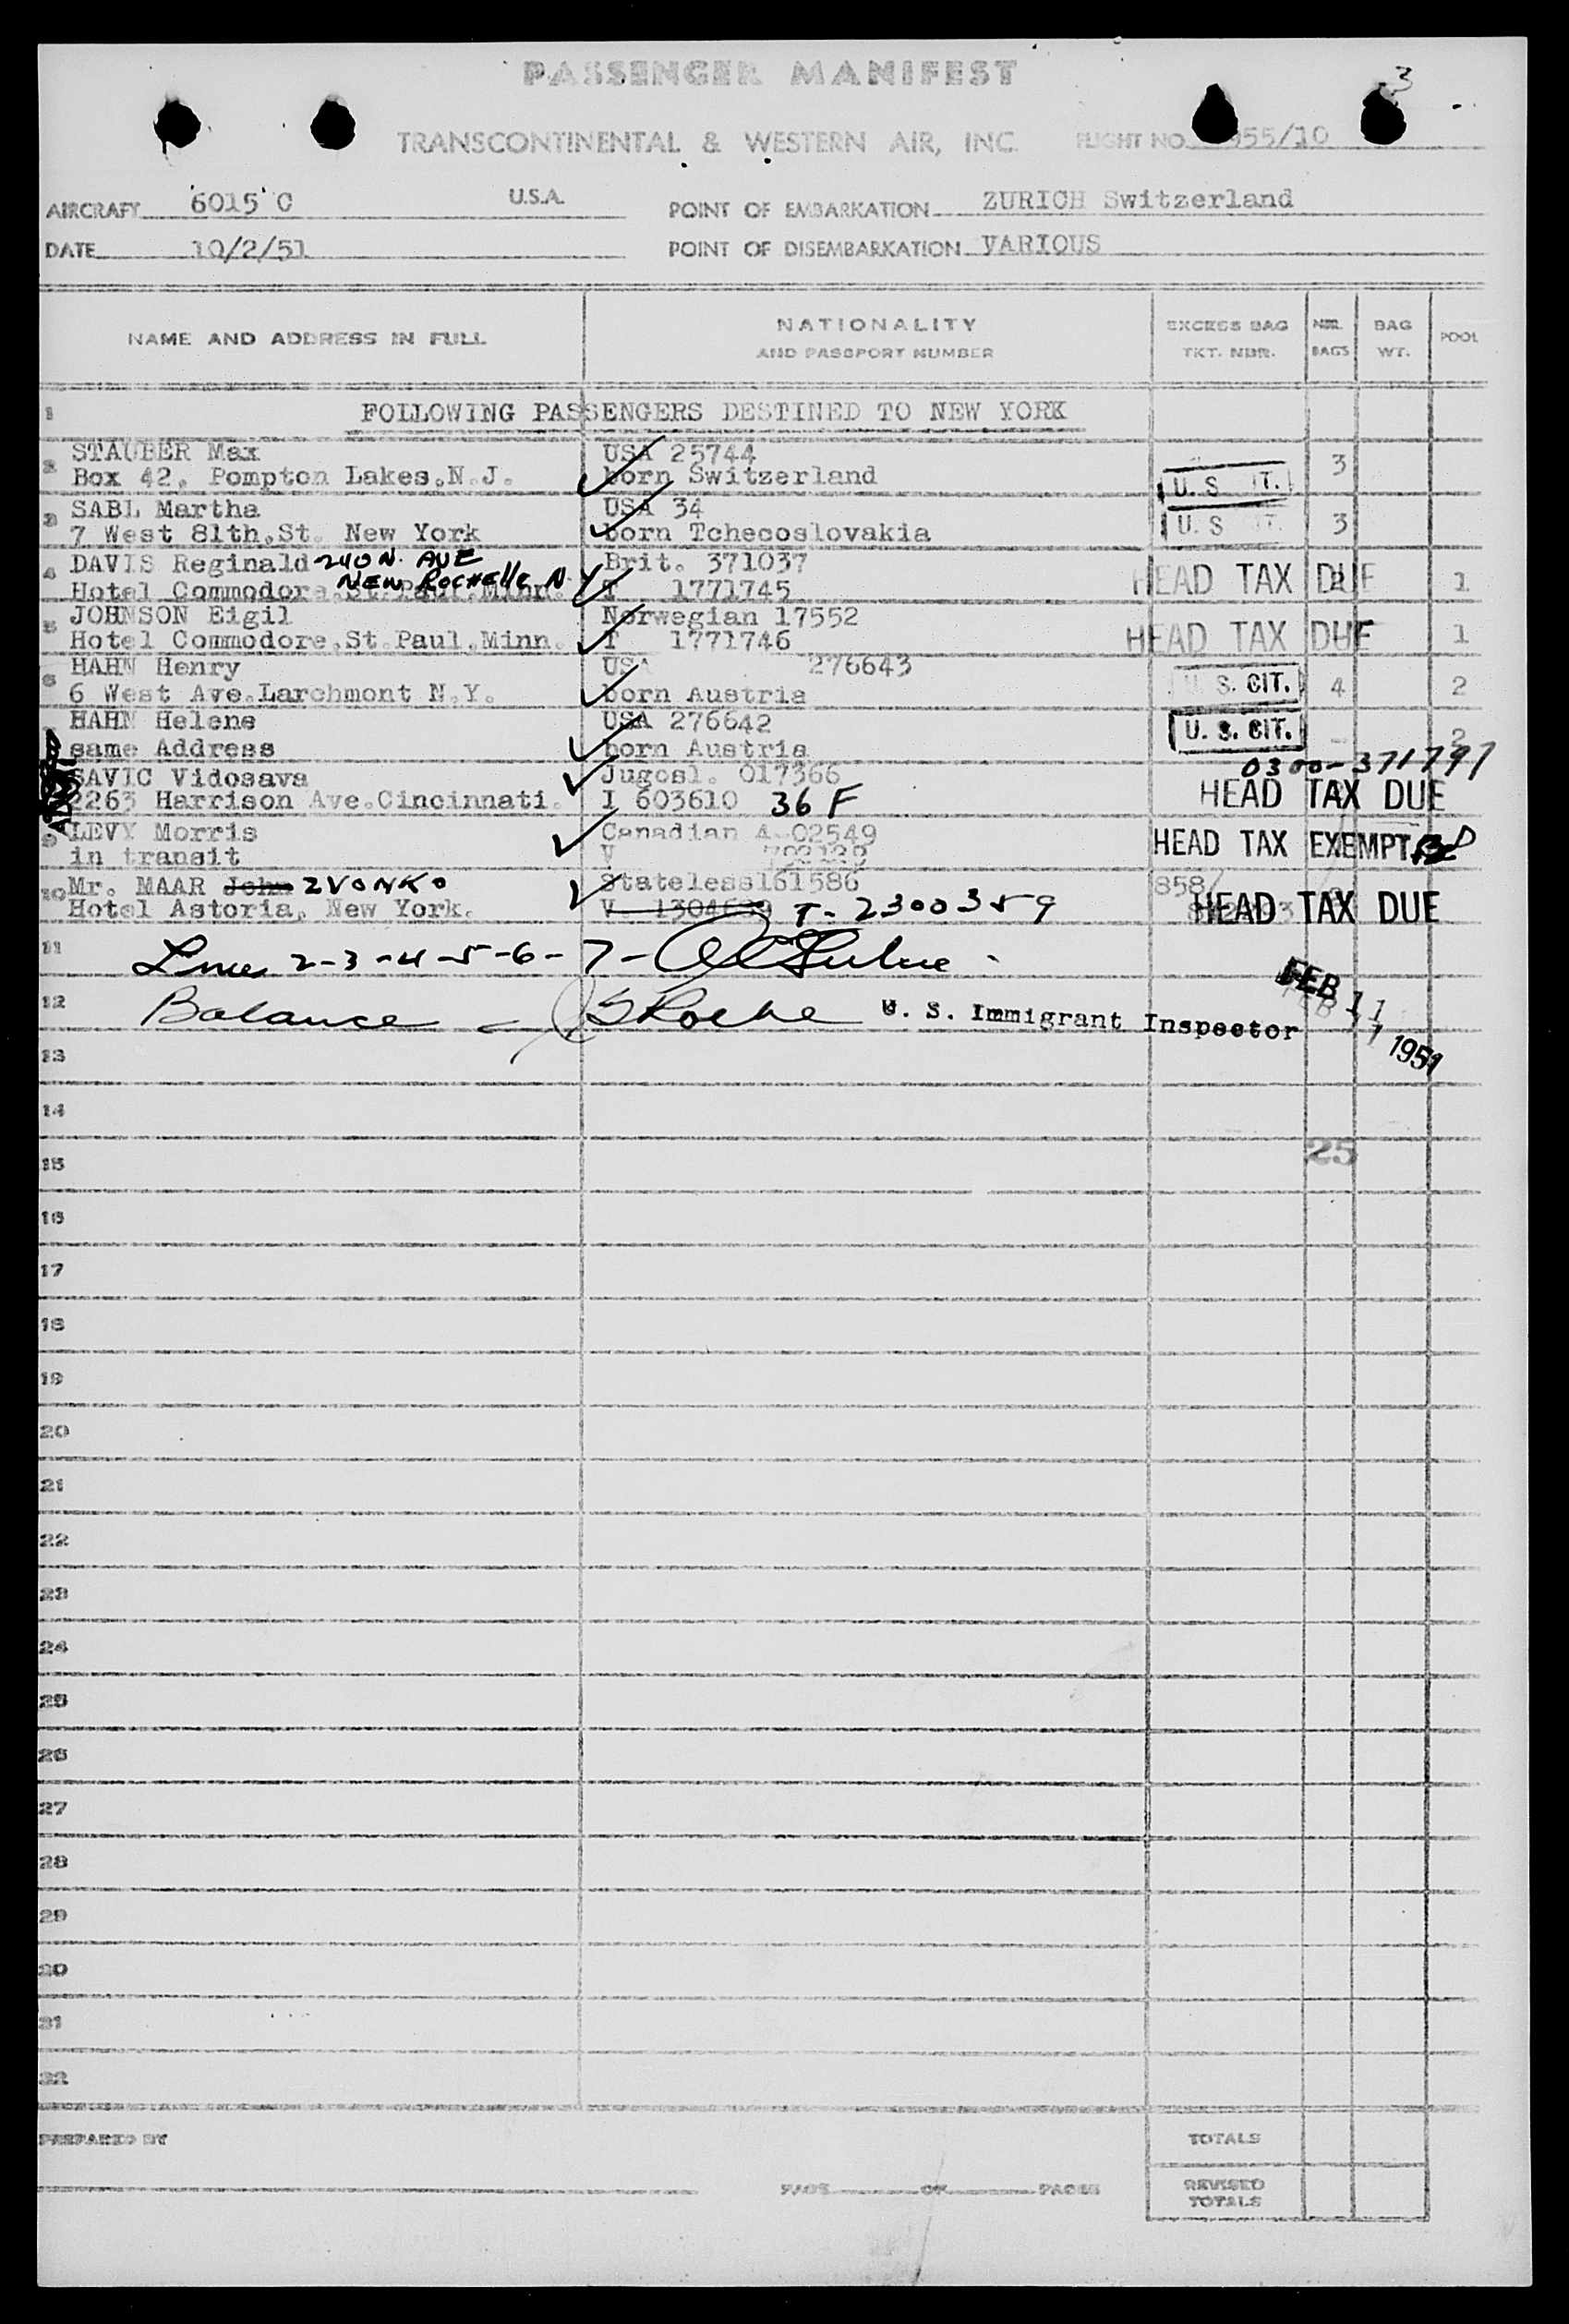 3
PASSENGER MANIFEST
TRANSCONTINENTAL & WESTERN AIR, INC. FLIGHT NO. 955/10
AIRCRAFT 6015 C U.S.A. POINT OF EMBARKATION ZURICH Switzerland
DATE 10/2/51 POINT OF DISEMBARKATION VARIOUS
NAME AND ADDRESS IN FULL NATIONALITY AND PASSPORT NUMBER EXCESS BAG TKT. NBR. NBR. BAGS BAG WT. POOL
1 FOLLOWING PASSENGERS DESTINED TO NEW YORK
2 STAUBER Max USA 25744 3
Box 42, Pompton Lakes.N.J. born Switzerland U. S IT.
3 SABL Martha USA 34
7 West 81th.St. New York born Tchecoslovakia U. S IT. 3
4 DAVIS Reginald 240 N. AVE Brit. 371037
Hotel Commodore.St.Paul.Minn. NEW ROCHELLE N.Y T 1771745 HEAD TAX DUE 1
5 JOHNSON Eigil Norwegian 17552
Hotel Commodore.St.Paul.Minn. T 1771746 HEAD TAX DUE 1
6 HAHN Henry USA 276643
6 West Ave.Larchmont N.Y. born Austria U. S. CIT. 4 2
HAHN Helene USA 276642
same Address born Austria U. S. CIT. 2
SAVIC Vidosava Jugosl. 017366 0300-371797
2263 Harrison Ave.Cincinnati. I 603610 36 F HEAD TAX DUE
9 LEVY Morris Canadian 4-02549
in transit V HEAD TAX EXEMPT
10 Mr. MAAR John ZVONKO Stateless161586 858/
Hotel Astoria, New York. V. T- 2300359 HEAD TAX DUE
11 Line 2-3-4-5-6-7-
12 Balance - U. S. Immigrant Inspector FEB 11 1951
13
14
15 25
16
17
18
19
20
21
22
23
24
25
26
27
28
29
30
31
32
PREPARED BY TOTALS
PAGE OF PAGES REVISED TOTALS